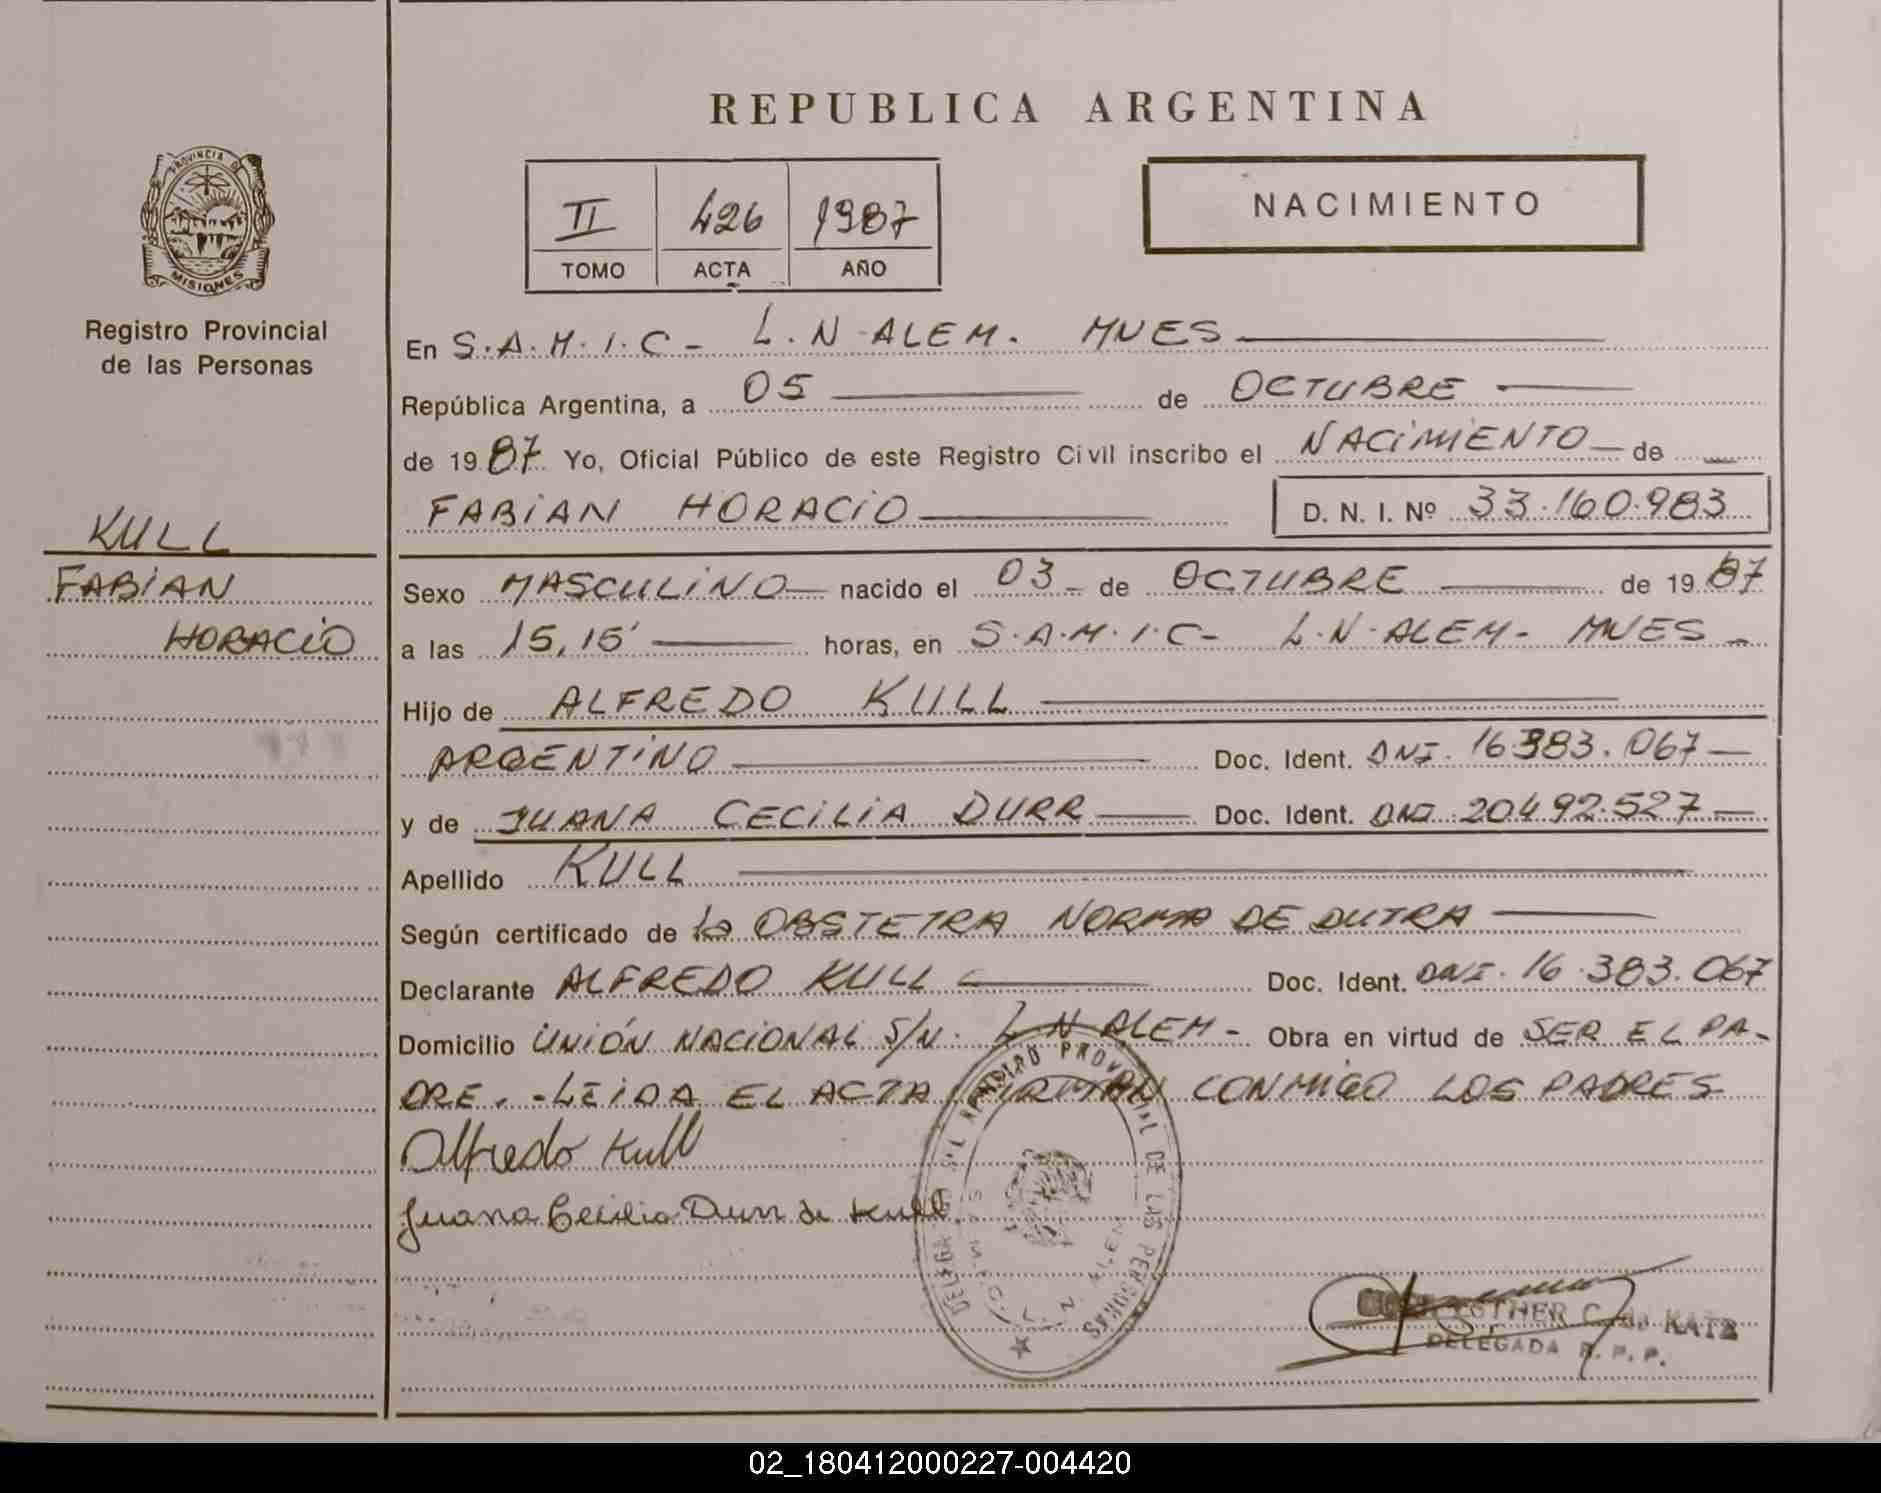 REPUBLICA ARGENTINA
PROVINCIA DE
MISIONES
Registro Provincial
de las Personas
II 426 1987
TOMO ACTA AÑO
NACIMIENTO
En S.A.M.I.C- L.N-ALEM. MNES
República Argentina, a 05 de OCTUBRE
de 1987 Yo, Oficial Público de este Registro Civil inscribo el NACIMIENTO de
FABIAN HORACIO D. N. I. Nº 33.160.983
KULL
FABIAN
HORACIO
Sexo MASCULINO nacido el 03 de OCTUBRE de 1987
a las 15,15' horas, en S.A.M.I.C- L.N-ALEM- MNES
Hijo de ALFREDO KULL
ARGENTINO Doc. Ident. DNI. 16383.067
y de JUANA CECILIA DURR Doc. Ident. DNI 20492.527
Apellido KULL
Según certificado de la OBSTETRA NORMA DE DUTRA
Declarante ALFREDO KULL Doc. Ident. DNI. 16.383.067
Domicilio UNIÓN NACIONAL S/N. L.N ALEM- Obra en virtud de SER EL PA-
DRE. -LEIDA EL ACTA FIRMAN CONMIGO LOS PADRES
Alfredo Kull
Juana Cecilia Durr de Kull
REGISTRO PROVINCIAL DE LAS PERSONAS
S.A.M.I.C. L.N. ALEM
ESTHER C. de KATZ
DELEGADA R. P. P.
02_180412000227-004420